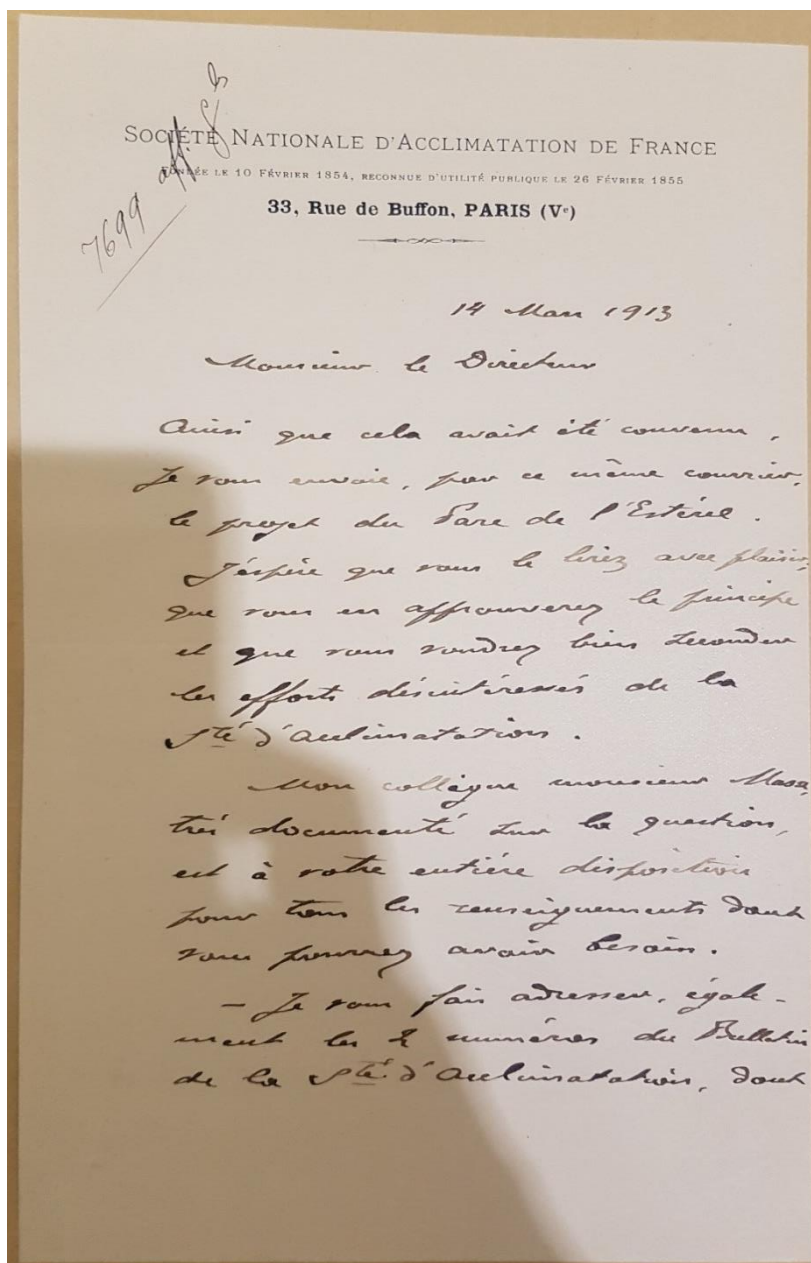 7699 aff.
SOCIÉTÉ NATIONALE D'ACCLIMATATION DE FRANCE
FONDÉE LE 10 FÉVRIER 1854, RECONNUE D'UTILITÉ PUBLIQUE LE 26 FÉVRIER 1855
33, Rue de Buffon, PARIS (Vᵉ)
14 Mars 1913
Monsieur le Directeur
Ainsi que cela avait été convenu,
Je vous envoie, par ce même courrier,
le projet du Parc de l'Estérel.
J'espère que vous le lirez avec plaisir,
que vous en approuverez le principe
et que vous voudrez bien seconder
les efforts désintéressés de la
Sté d'Acclimatation.
Mon collègue monsieur
très documenté sur la question,
est à votre entière disposition
pour tous les renseignements dont
vous pourrez avoir besoin.
— Je vous fais adresser, égale-
ment les 2 numéros du Bulletin
de la Sté d'Acclimatation, dont